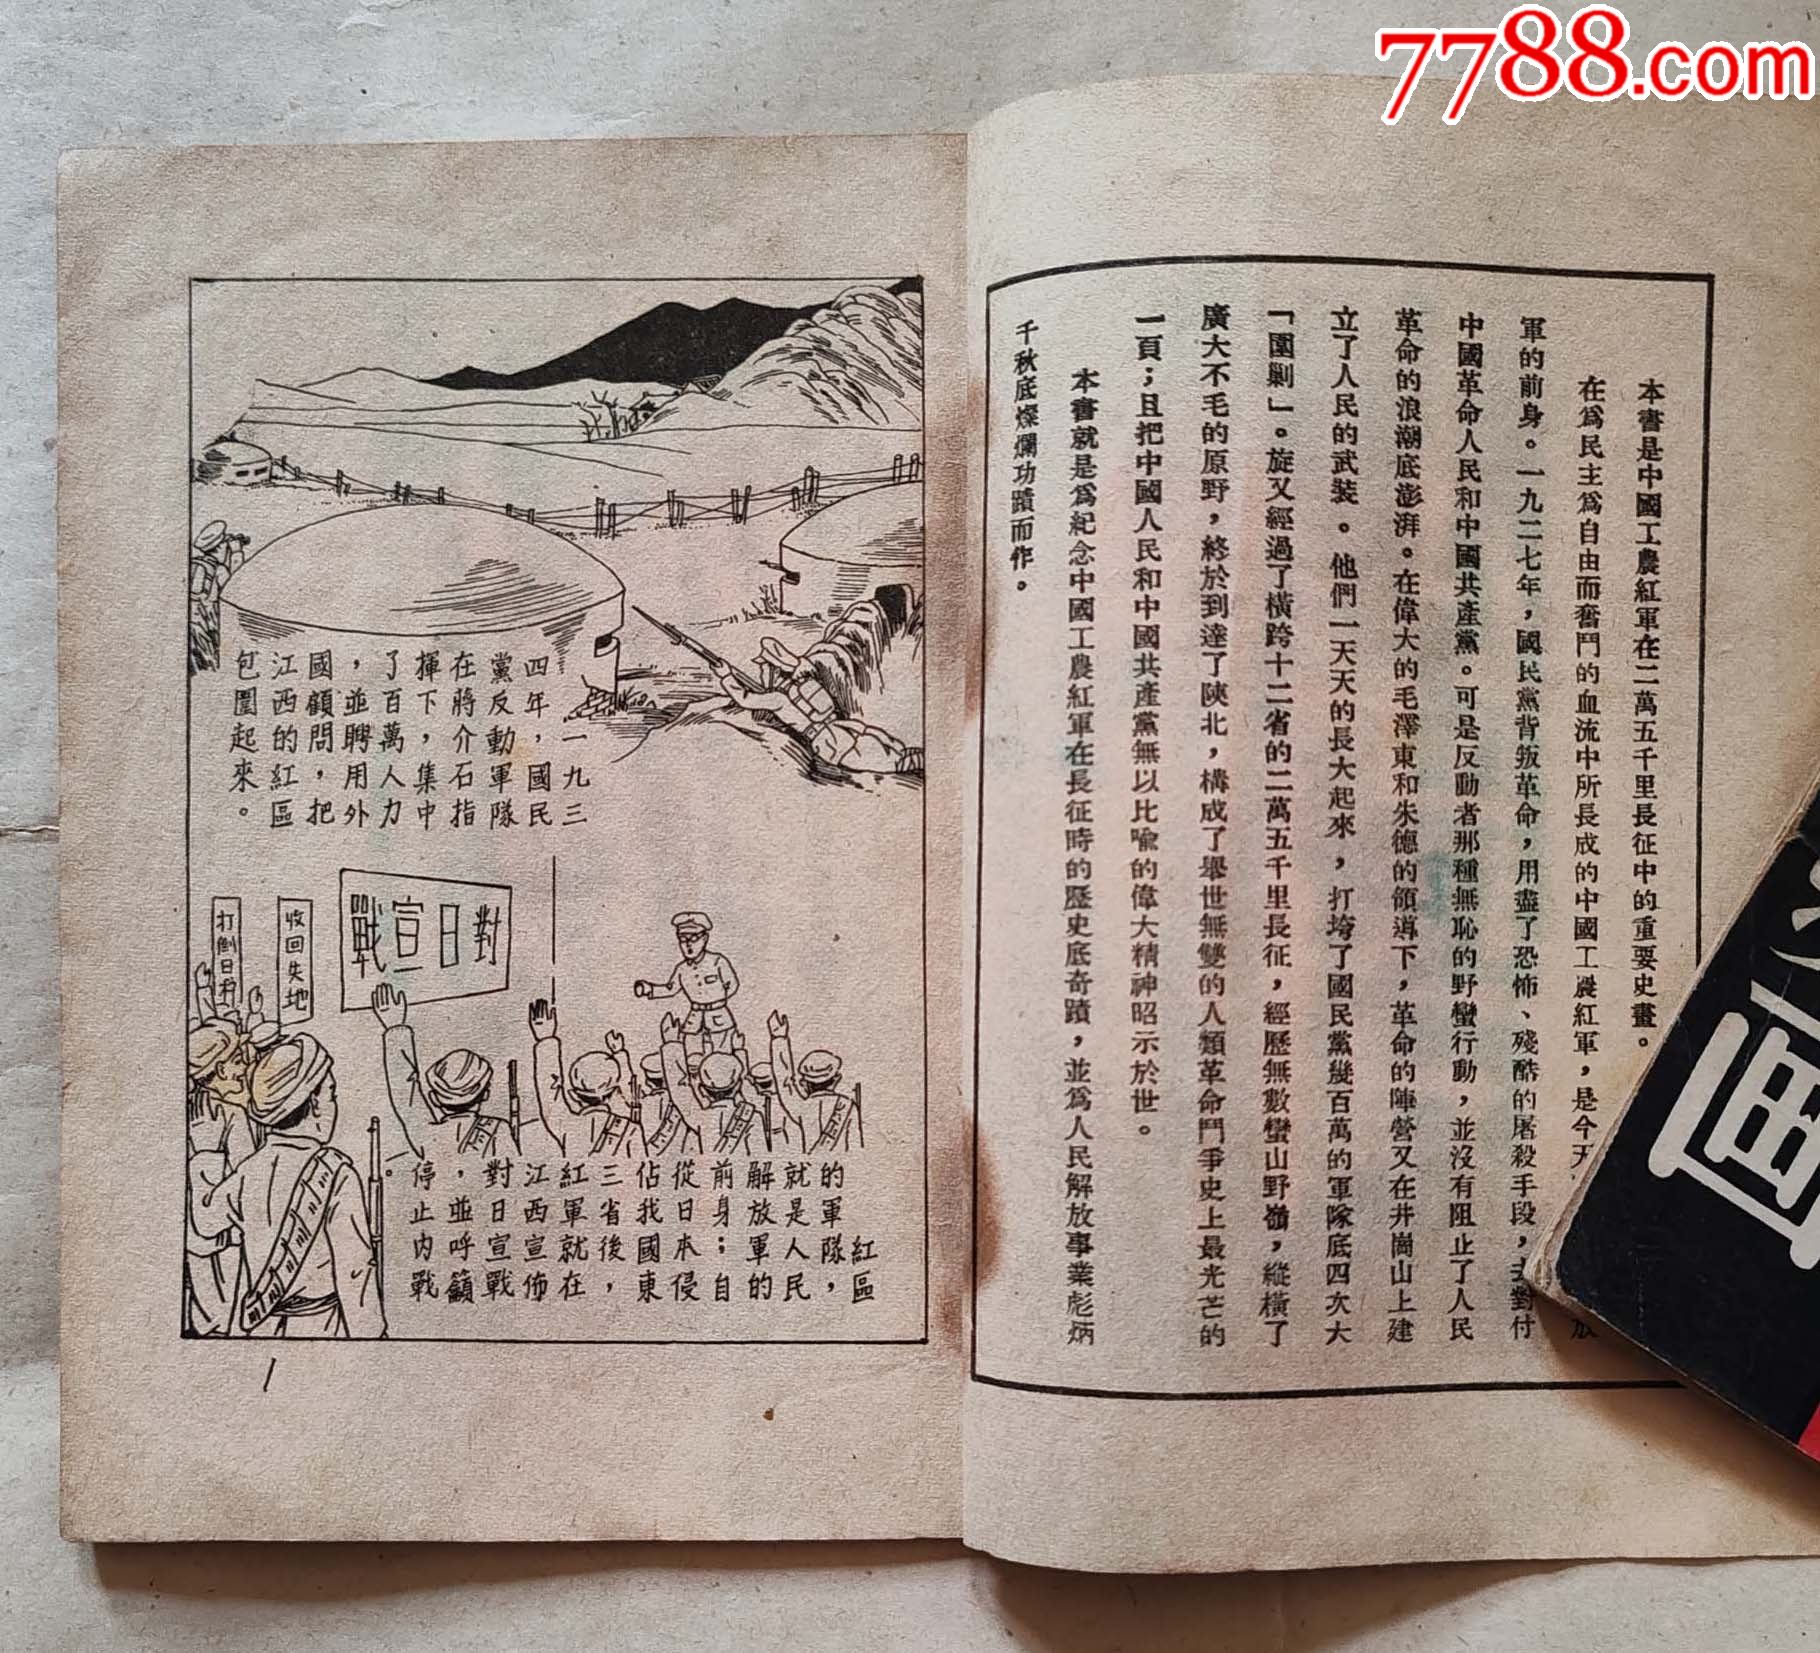 7788.com
本書是中國工農紅軍在二萬五千里長征中的重要史畫。
在爲民主爲自由而奮鬥的血流中所長成的中國工農紅軍，是今天
軍的前身。一九二七年，國民黨背叛革命，用盡了恐怖、殘酷的屠殺手段，去對付
中國革命人民和中國共產黨。可是反動者那種無恥的野蠻行動，並沒有阻止了人民
革命的浪潮底澎湃。在偉大的毛澤東和朱德的領導下，革命的陣營又在井崗山上建
立了人民的武裝。他們一天天的長大起來，打垮了國民黨幾百萬的軍隊底四次大
「圍剿」。旋又經過了橫跨十二省的二萬五千里長征，經歷無數蠻山野嶺，縱橫了
廣大不毛的原野，終於到達了陝北，構成了舉世無雙的人類革命鬥爭史上最光芒的
一頁；且把中國人民和中國共產黨無以比喩的偉大精神昭示於世。
本書就是爲紀念中國工農紅軍在長征時的歷史底奇蹟，並爲人民解放事業彪炳
千秋底燦爛功蹟而作。
一九三
四年，國民
黨反動軍隊
在蔣介石指
揮下，集中
了百萬人力
，並聘用外
國顧問，把
江西的紅區
包圍起來。
對日宣戰
收回失地
打倒日
紅區
的軍隊，
就是人民
解放軍的
前身；自
從日本侵
佔我國東
三省後，
紅軍就在
江西宣佈
對日宣戰
，並呼籲
停止內戰
。
1
画